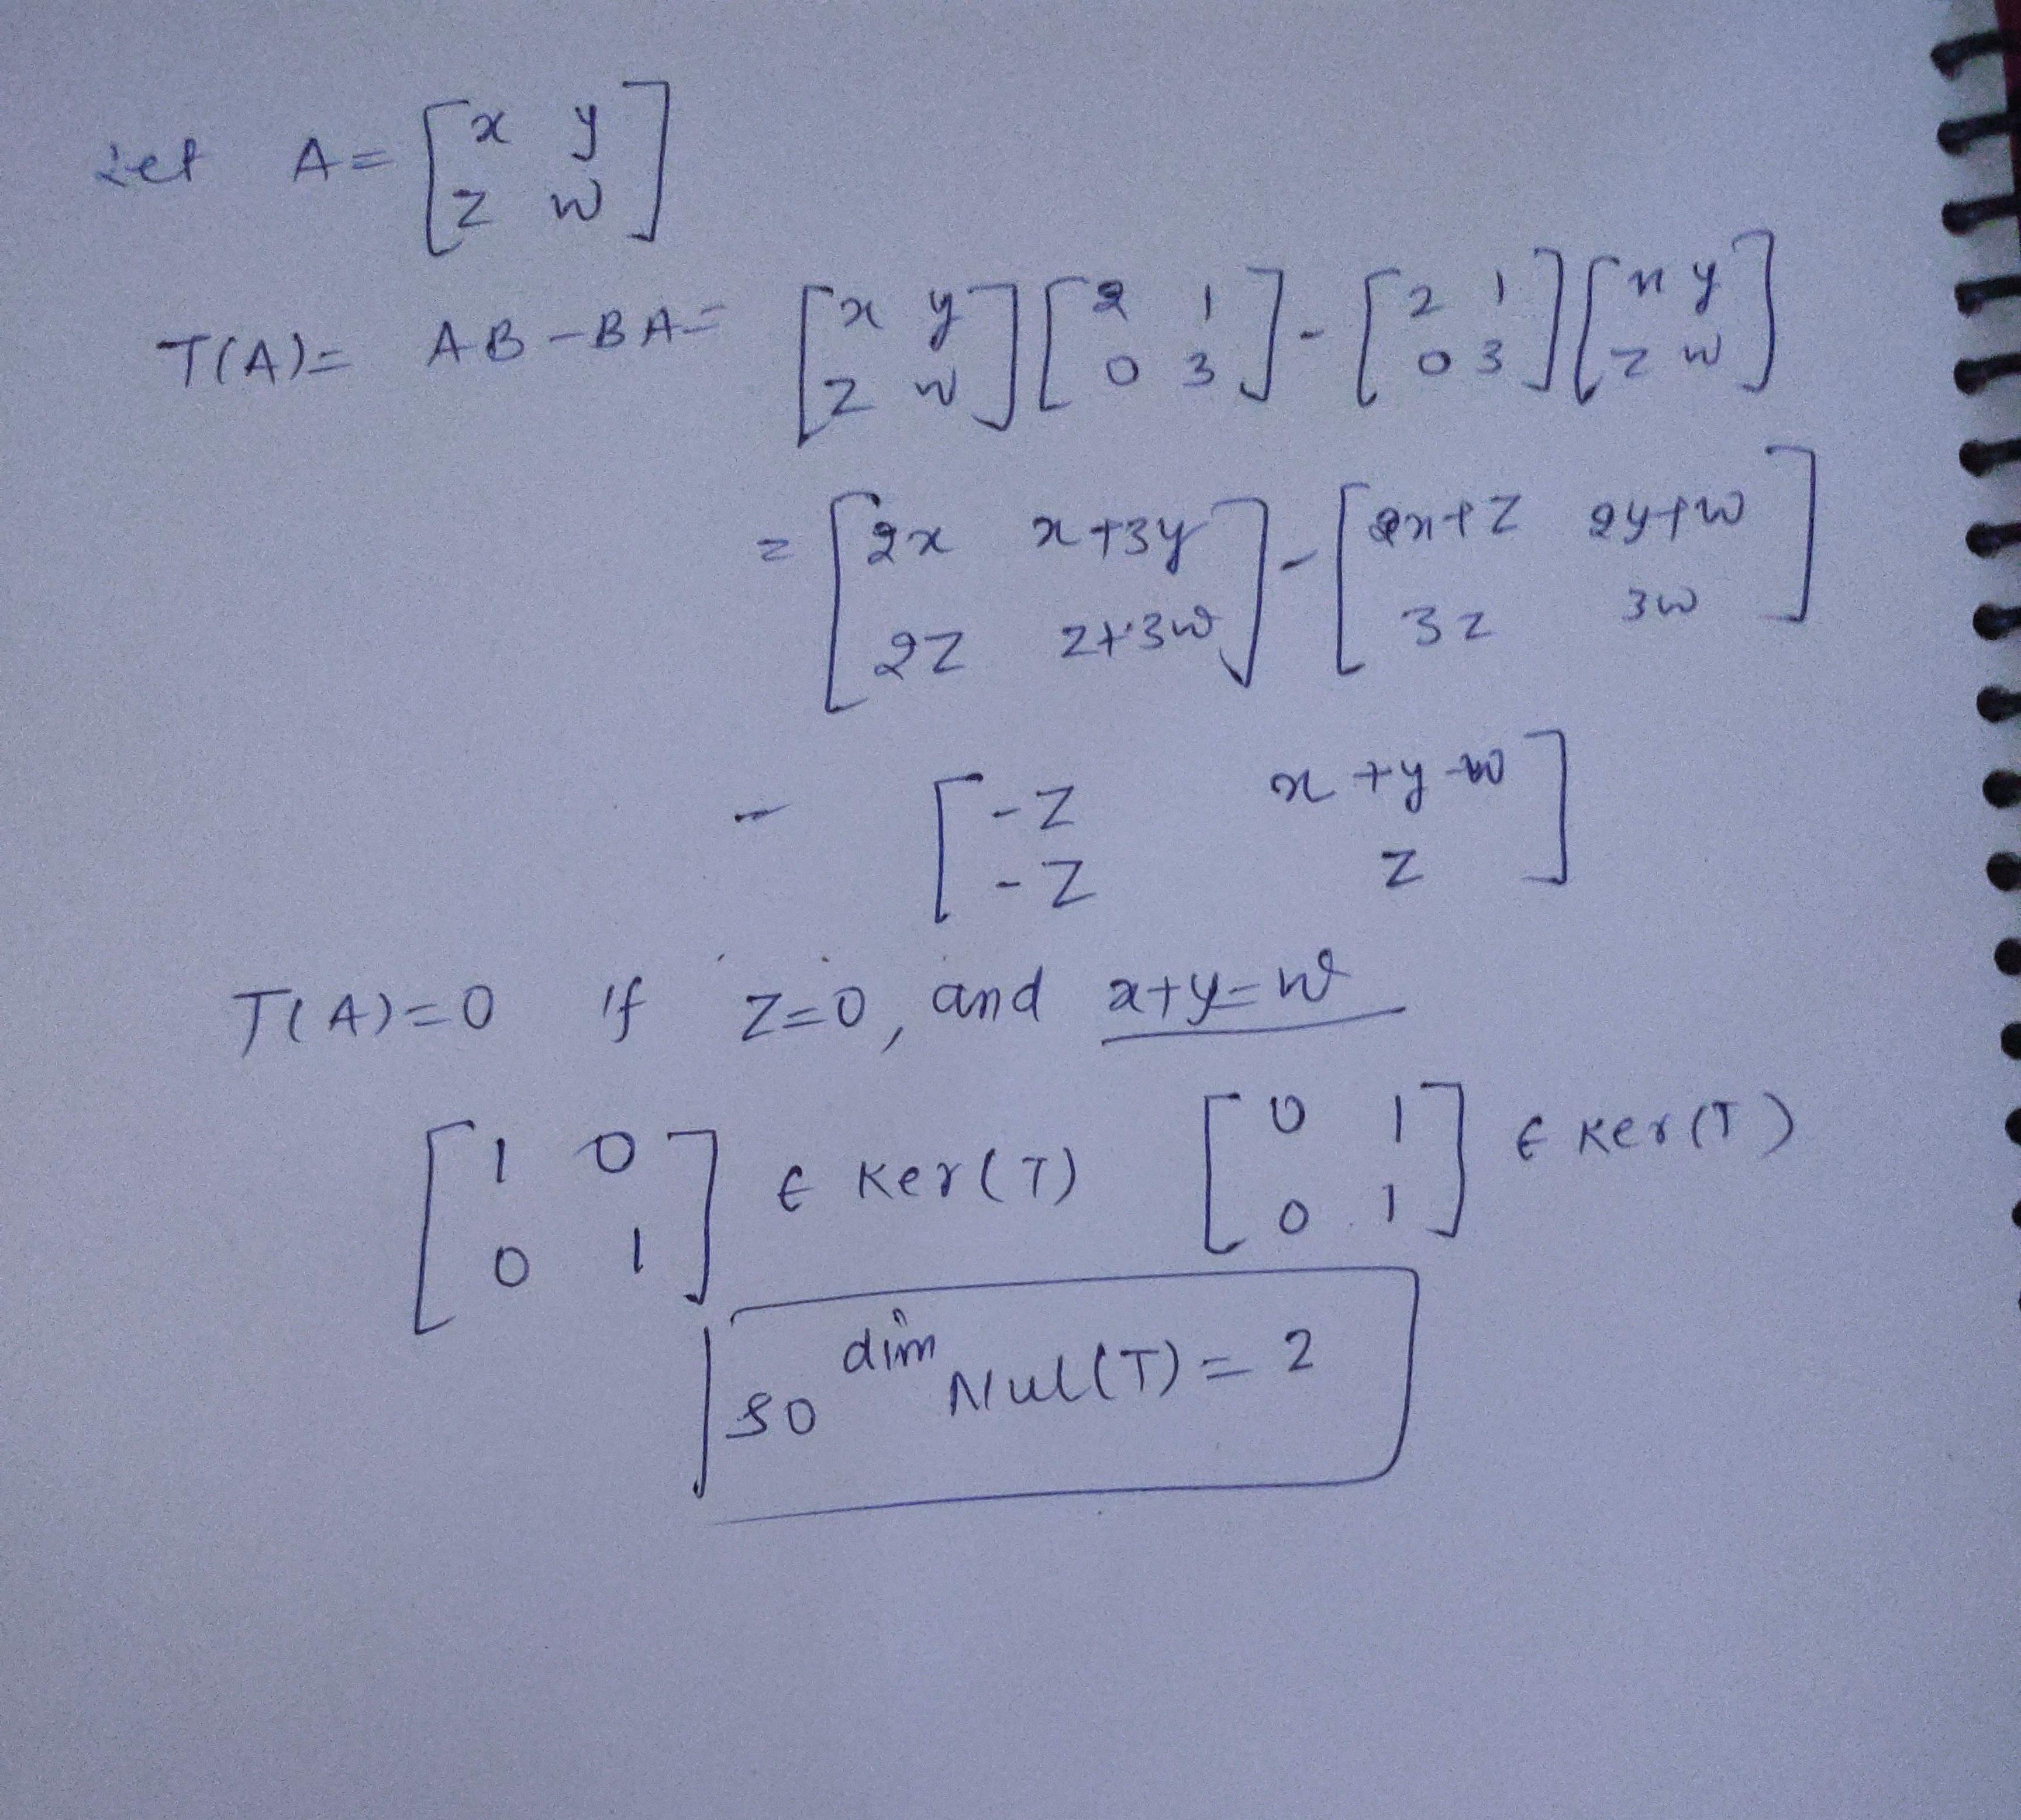 Let A = [x y
z w]
T(A) = AB - BA = [x y
z w] [2 1
0 3] - [2 1
0 3] [x y
z w]
= [2x x+3y
2z z+3w] - [2x+z 2y+w
3z 3w]
- [-z x+y-w
-z z]
T(A)=0 if z=0, and x+y=w
[1 0
0 1] ∈ Ker(T) [0 1
0 1] ∈ Ker(T)
so dim Nul(T) = 2